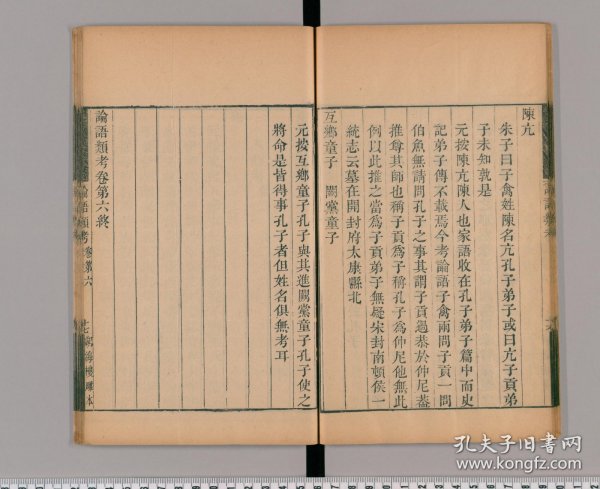 陳亢
朱子曰子禽姓陳名亢孔子弟子或曰亢子貢弟
子未知孰是
元按陳亢陳人也家語收在孔子弟子篇中而史
記弟子傳不載焉今考論語子禽兩問子貢一問
伯魚無請問孔子之事其謂子貢過恭於仲尼葢
推尊其師也稱子貢爲子稱孔子爲仲尼他無此
例以此推之當爲子貢弟子無疑宋封南頓侯一
統志云墓在開封府太康縣北
互鄉童子 闕黨童子
元按互鄉童子孔子與其進闕黨童子孔子使之
將命是皆得事孔子者但姓名俱無考耳
論語類考卷第六終
論語類考 卷第六
七 湖海樓雕本
孔夫子旧书网
www.kongfz.com